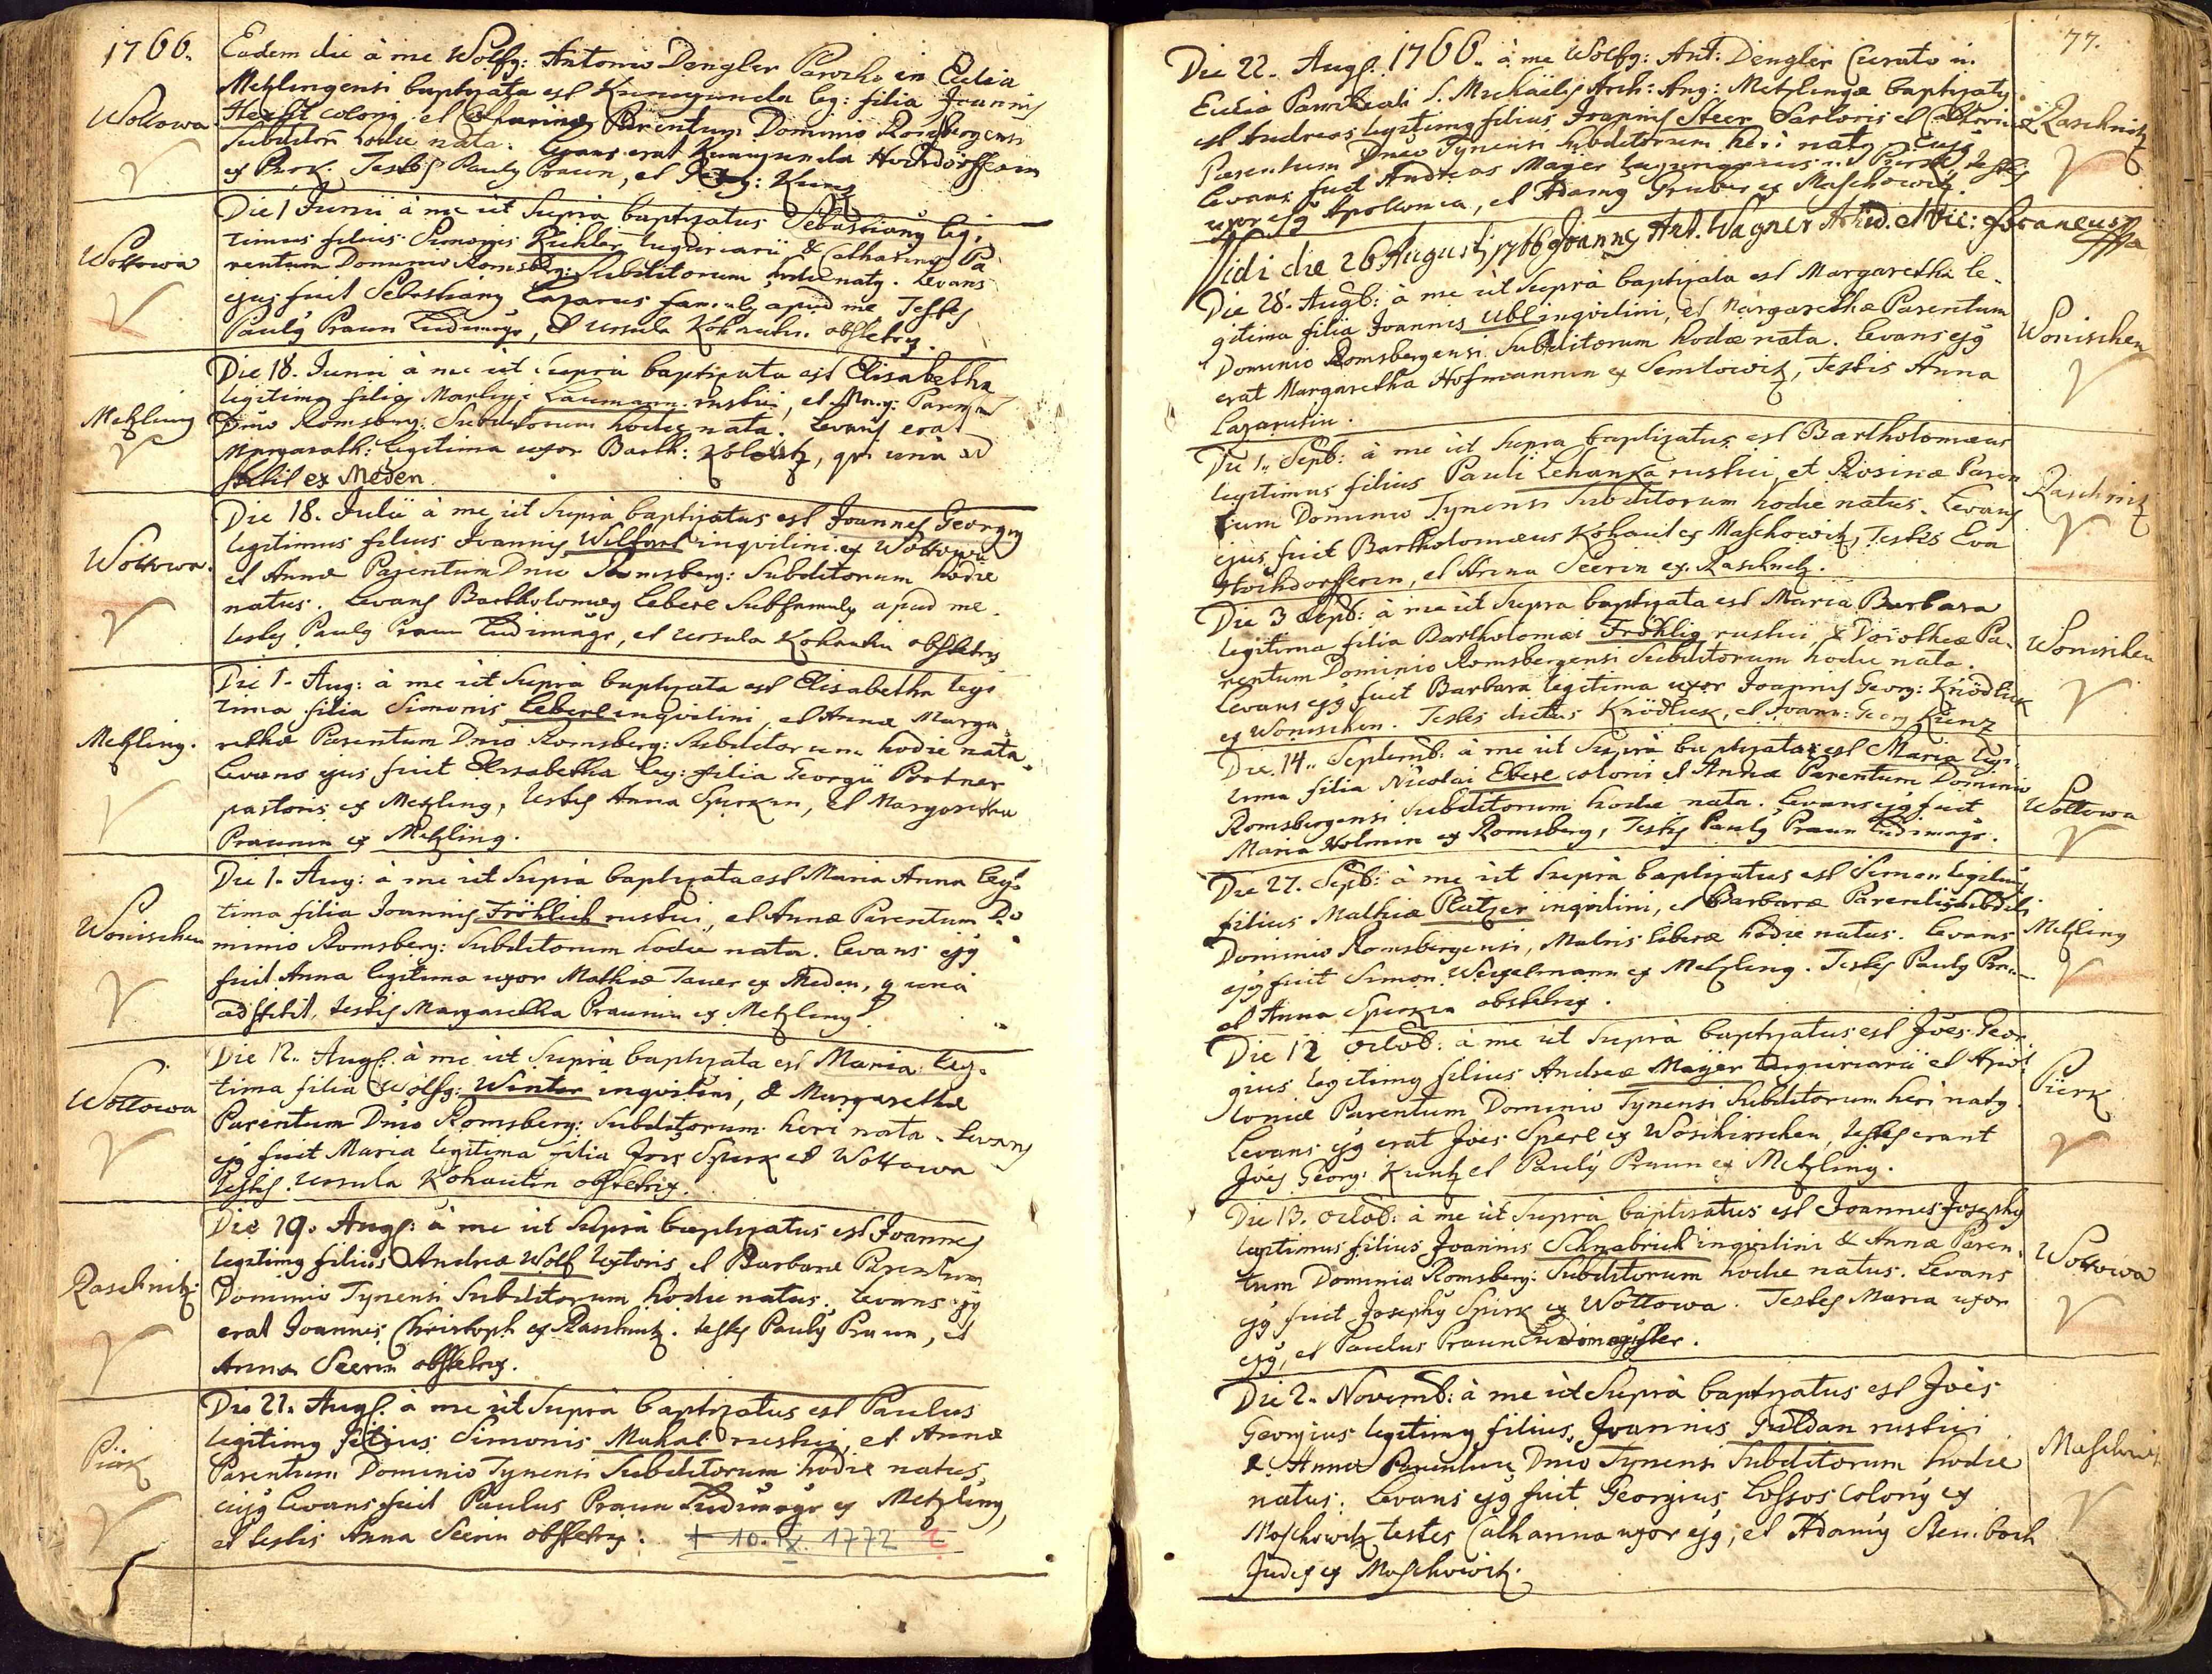 1766.
Eadem die à me Wolfg: Antonio Dengler Parocho in Eccl̃ia
Metzlingensi baptizata est Kunegunda leg: filia Joannis
Wottowa
Hecht coloni et Catharinæ Parentum Dominio Romsbergensi
Subditor̃ hodie nata. Levans erat Kunigunda Hochdörfferin
ex Pürk. Testes Pauly Praun, et Georg: Kunz
Die 1 Junii à me ùt Suprà baptizatus Sebastiany legi-
timus filius Simonis Kichler tuguriarii & Catharinæ Pa
Wottowa
rentum Dominio Romsberg: Subditorum hodie naty. Levans
ejus fuit Sebastiany Lazarus famuly apud me Testes
Pauly Praun Ludimagr, et Ursula Kohautin obstetrix.
Die 18. Junii à me ùt Suprà baptizata est Elisabetha
legitima filia Martini Laumann rustici, et Marg: Parentum
Metzling
Dn̄io Romsberg: Subditorum hodie nata. Levans erat
Margareth: legitima uxor Barth: , qu unà ad
stetit ex Meden
Die 18. Julii à me ùt Suprà baptizatus est Joannes Georgy
legitimus filius Joannis Wilfart inquilini ex Wottowa
Wottowa.
et Annæ Parentum Dn̄io Romsberg: Subditorum hodie
natus. Levans Bartholomey Leberl Subfamuly apud me.
testes Pauly Praun Ludimagr, et Ursula Kohautin obstetrix
Die 1. Aug: à me ùt Suprà baptizata est Elisabetha legi
tima filia Simonis Leberl inquilini, et Annæ Marga
Metzling.
rethæ Parentum Dn̄io Romsberg: Subditorum hodie nata.
Levans ejus fuit Elisabetha leg: filia Georgii Portner
pastoris ex Metzling, testes Anna Spirkin, et Margaretha
Praunin ex Metzling.
Die 1. Aug: à me ùt Suprà baptizata est Maria Anna legi
tima filia Joannis Fröhlich rustici, et Annæ Parentum Do
Wonischen
minio Romsberg: Subditorum hodie nata. Levans ejy
fuit Anna legitima uxor Mathiæ Tauer ex Meden, q unà
adstetit, testes Margaretha Praunin ex Metzling.
Die 12. Augs. à me ùt Suprà baptizata est Maria legi
tima filia Wolfg: Winter inquilini, & Margarethæ
Wottowa
Parentum Dn̄io Romsberg: Subditorum heri nata. Levans
ejy fuit Maria legitima filia Jois Spirk ex Wottowa
testes. Ursula Kohautin obstetrix.
Die 19. Augs: à me ùt Suprà baptizatus est Joannes
legitimy filius Andreæ Wolf textoris, et Barbaræ Parentum
Raschnitz
Dominio Tynensi Subditorum hodie natus. Levans ejy
erat Joannes Christoph ex Raschnitz. testes Pauly Praun, et
Anna Seerin obstetrix.
Die 21. Augs. à me ùt Suprà baptizatus est Paulus
legitimy filius Simonis Muhal rustici, et Annæ
Pürk
Parentum Dominio Tynensi Subditorum hodie natus,
cujy Levans fuit Paulus Praun Ludimagr ex Metzling,
et testis Anna Seerin obstetrix. + 10. IX. 1772
77.
Die 22. Augs. 1766. à me Wolfg: Ant: Dengler Curato in
Eccl̃ia Parochiali S. Michaëlis Arch: Ang: Metzlingæ baptizaty
est Andreas legitimy filius Joannis Steer Sartoris et Catharinæ
Raschnitz
Parentum Dn̄io Tynensi Subditorum heri naty. Cujy
Levans fuit Andreas Mayer tuguriarius in Pürk, testes
uxor ejy Apollonia, et Adamy Gruber ex Maschowitz.
Vidi die 26 Augusti 1766 Joannes Ant. Wagner Archid. et Vic: foraneus
Die 28. Augs: à me ùt Suprà baptizata est Margaretha le-
gitima filia Joannis Ubl inquilini, et Margarethæ Parentum
Wonischen
Dominio Romsbergensi Subditorum hodie nata. Levans ejy
erat Margaretha Hofmannin ex Semlowitz, Testis Anna
Lazarusin.
Die 1. Septb: à me ùt Supra baptizatus est Bartholomæus
legitimus filius Pauli Lehanka rustici, et Rosinæ Paren
Raschnitz
tum Dominio Tynensi Subditorum hodie natus. Levans
ejus fuit Bartholomæus Kohaut ex Maschowitz, Testes Eva
Hochdorfferin, et Anna Seerin ex Raschnitz.
Die 3 Septb: à me ùt Supra baptizata est Maria Barbara
legitima filia Bartholomæi Fröhlig rustici, & Dorotheæ Pa-
Wonischen
rentum Dominio Romsbergensi Subditorum hodie nata.
Levans ejy fuit Barbara legitima uxor Joannis Georg: Knödlick
ex Wonischen. Testes dictus Knödlick, et Joann: Georg Kunz
Die 14. Septemb: à me ùt Suprà baptizata est Maria legi-
tima filia Nicolai Eberl coloni et Annæ Parentum Dominio
Wottowa
Romsbergensi Subditorum hodie nata. Levans ejy fuit
Maria Holmin ex Romsberg, Testes Pauly Praun Ludimagr.
Die 27. Septb: à me ùt Suprà baptizatus est Simon legitimy
filius Mathiæ Platzer inquilini, et Barbaræ Parentis Subditi
Metzling
Dominio Romsbergensi, Matris liberæ hodie natus. Levans
ejy fuit Simon Weiselmann ex Metzling. Testes Pauly Praun
et Anna Spirkin obstetrix.
Die 12 Octob: à me ùt Suprà baptizatus est Jões Geor-
gius legitimy filius Andreæ Mayer tuguriarii et Apol
Pürk
loniæ Parentum Dominio Tynensi Subditorum heri naty.
Levans ejy erat Jões Sperl ex Worschirschen, testes erant
Jões Georg: Kuntz et Pauly Praun ex Metzling.
Die 13. Octob: à me ùt Suprà baptizatus est Joannes Josephy
legitimus filius Joannis Schnabrich inquilini & Annæ Paren-
Wottowa
tum Dominio Romsberg: Subditorum hodie natus. Levans
ejy fuit Josephy Spirk ex Wottowa. Testes Maria uxor
ejy, et Paulus Praun Ludimagister.
Die 2. Novemb: à me ùt Suprà baptizatus est Jões
Georgius legitimy filius Joannis Guldan rustici
Maschowitz
& Annæ Parentum Dn̄io Tynensi Subditorum hodie
natus. Levans ejy fuit Georgius Lossos colony ex
Maschowitz testes Catharina uxor ejy, et Adamy Steinbach
Judex ex Maschowitz.